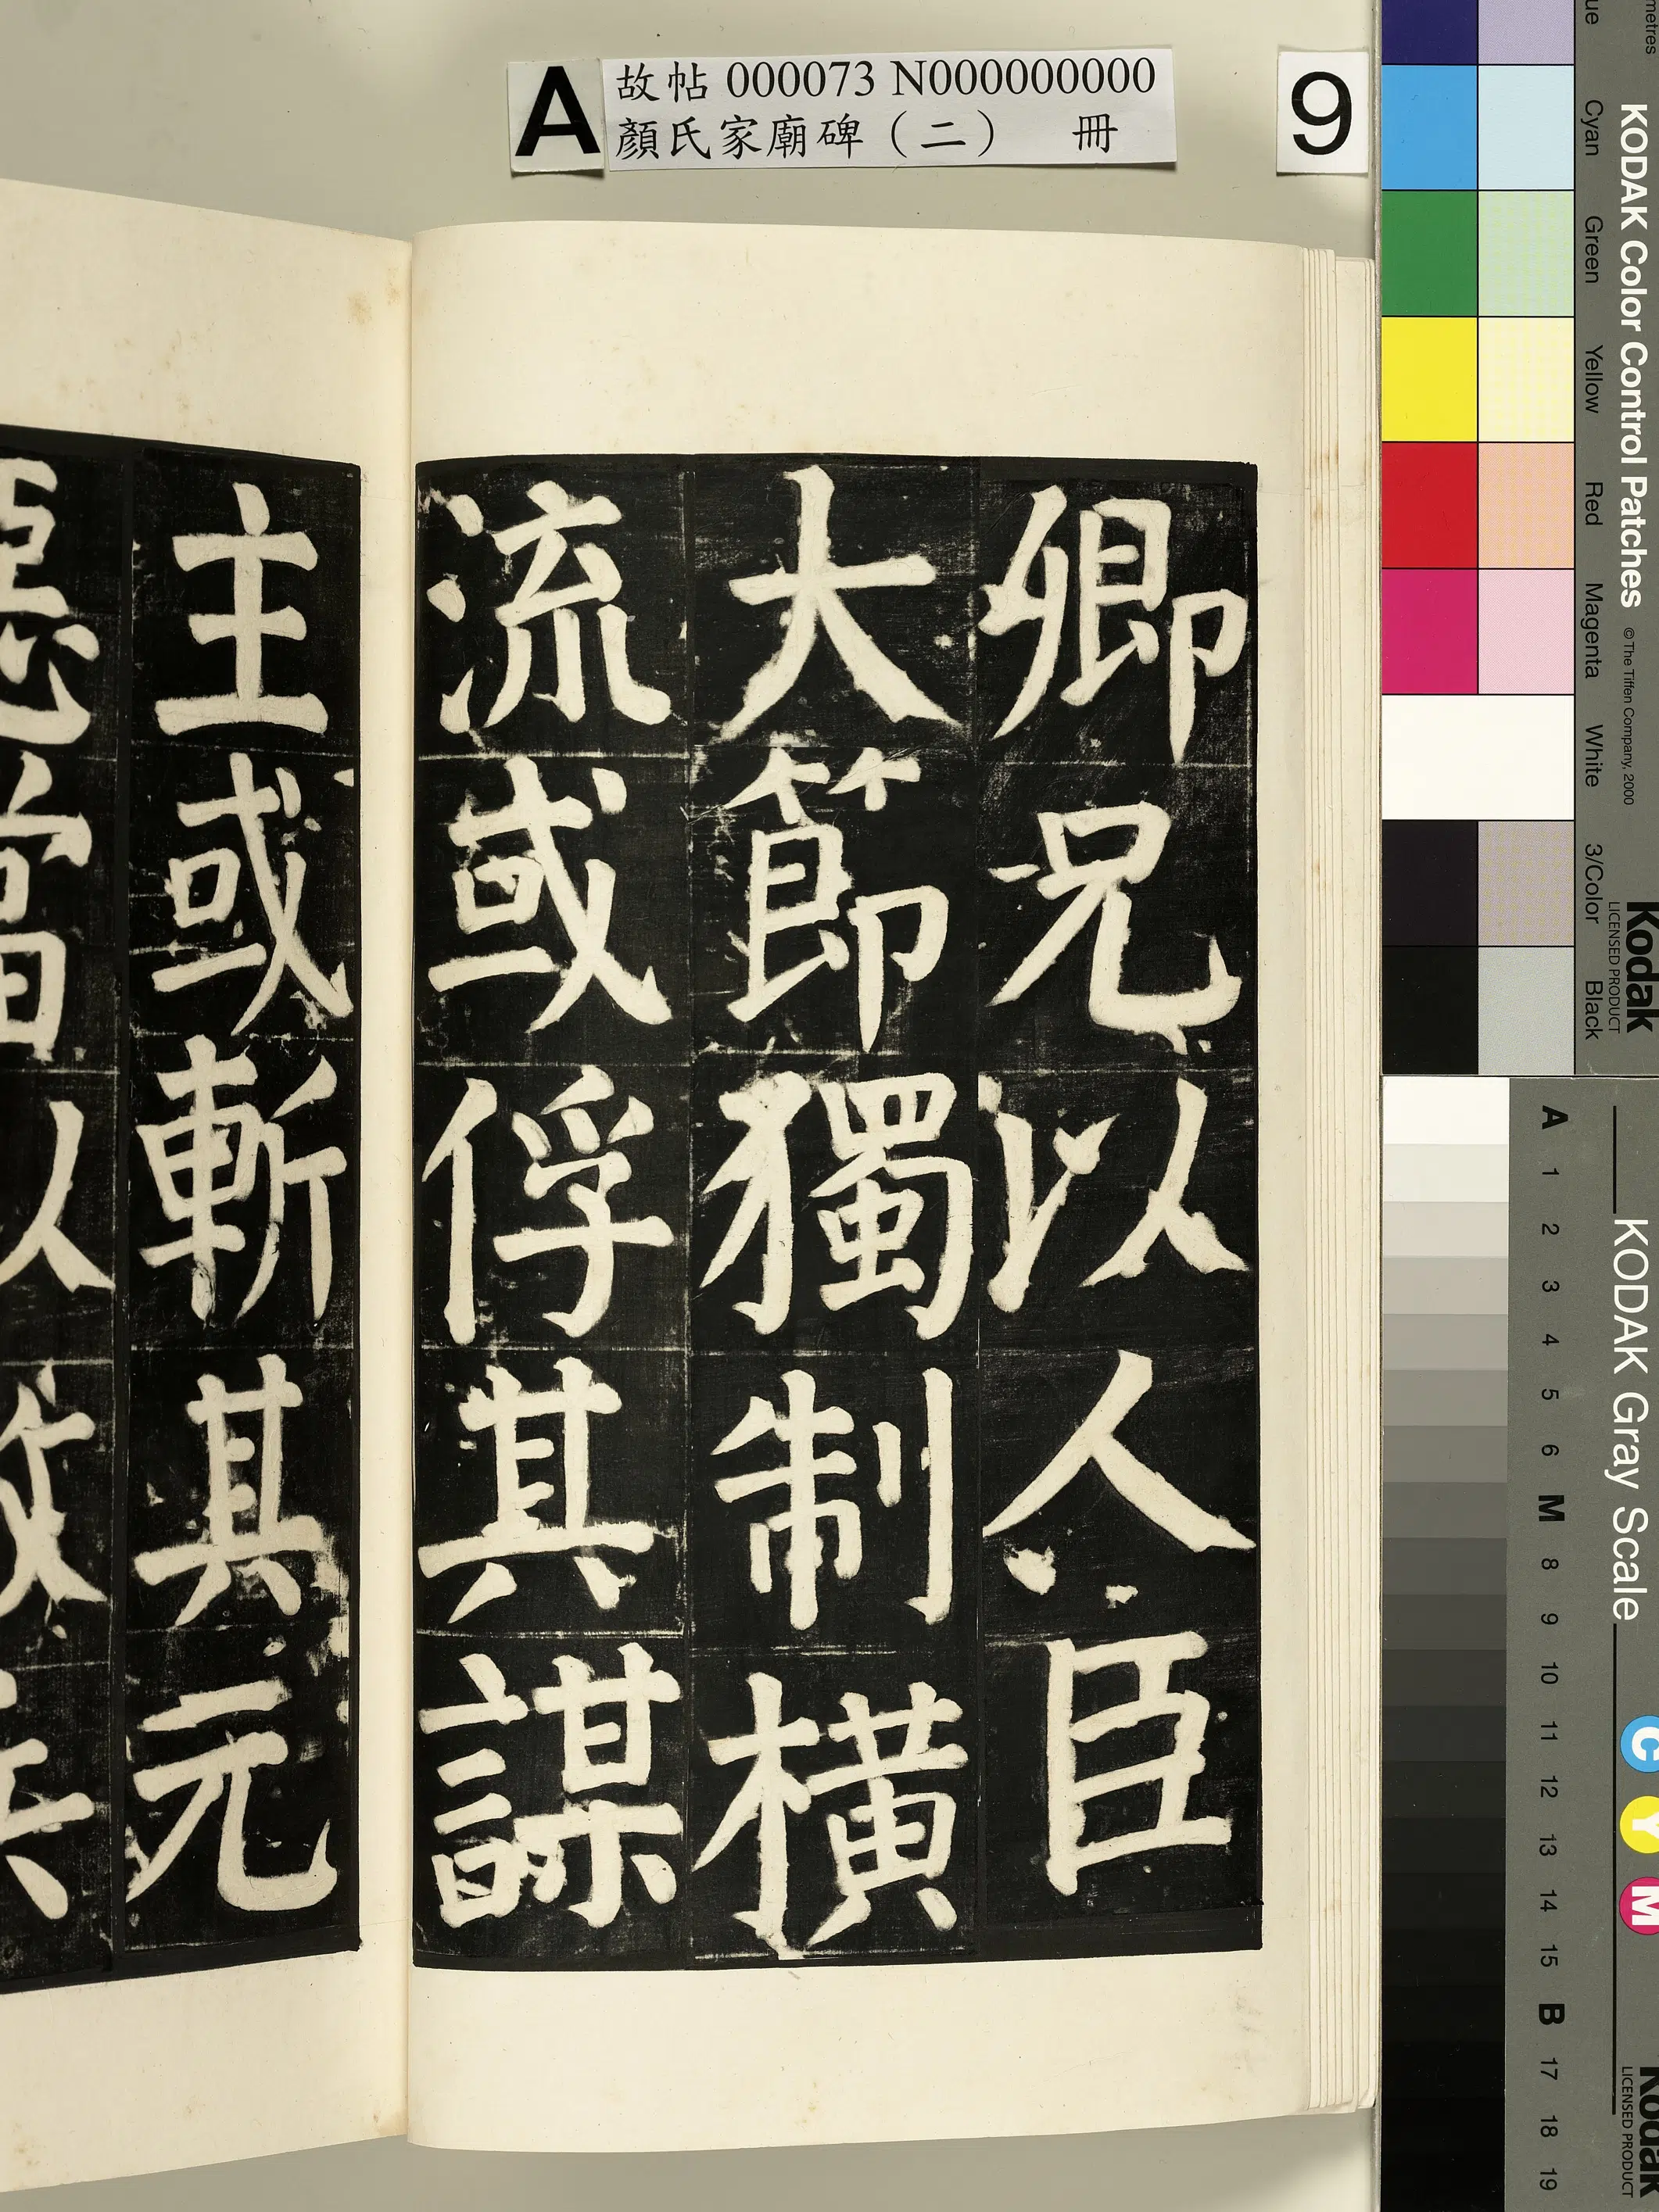 A 故帖 000073 N000000000
顏氏家廟碑（二） 冊
9
卿兄以人臣
大節獨制橫
流或俘其謀
主或斬其元
KODAK Color Control Patches © The Tiffen Company, 2000 Kodak LICENSED PRODUCT
Cyan Green Yellow Red Magenta White 3/Color Black
KODAK Gray Scale Kodak LICENSED PRODUCT
C Y M
A 1 2 3 4 5 6 M 8 9 10 11 12 13 14 15 B 17 18 19